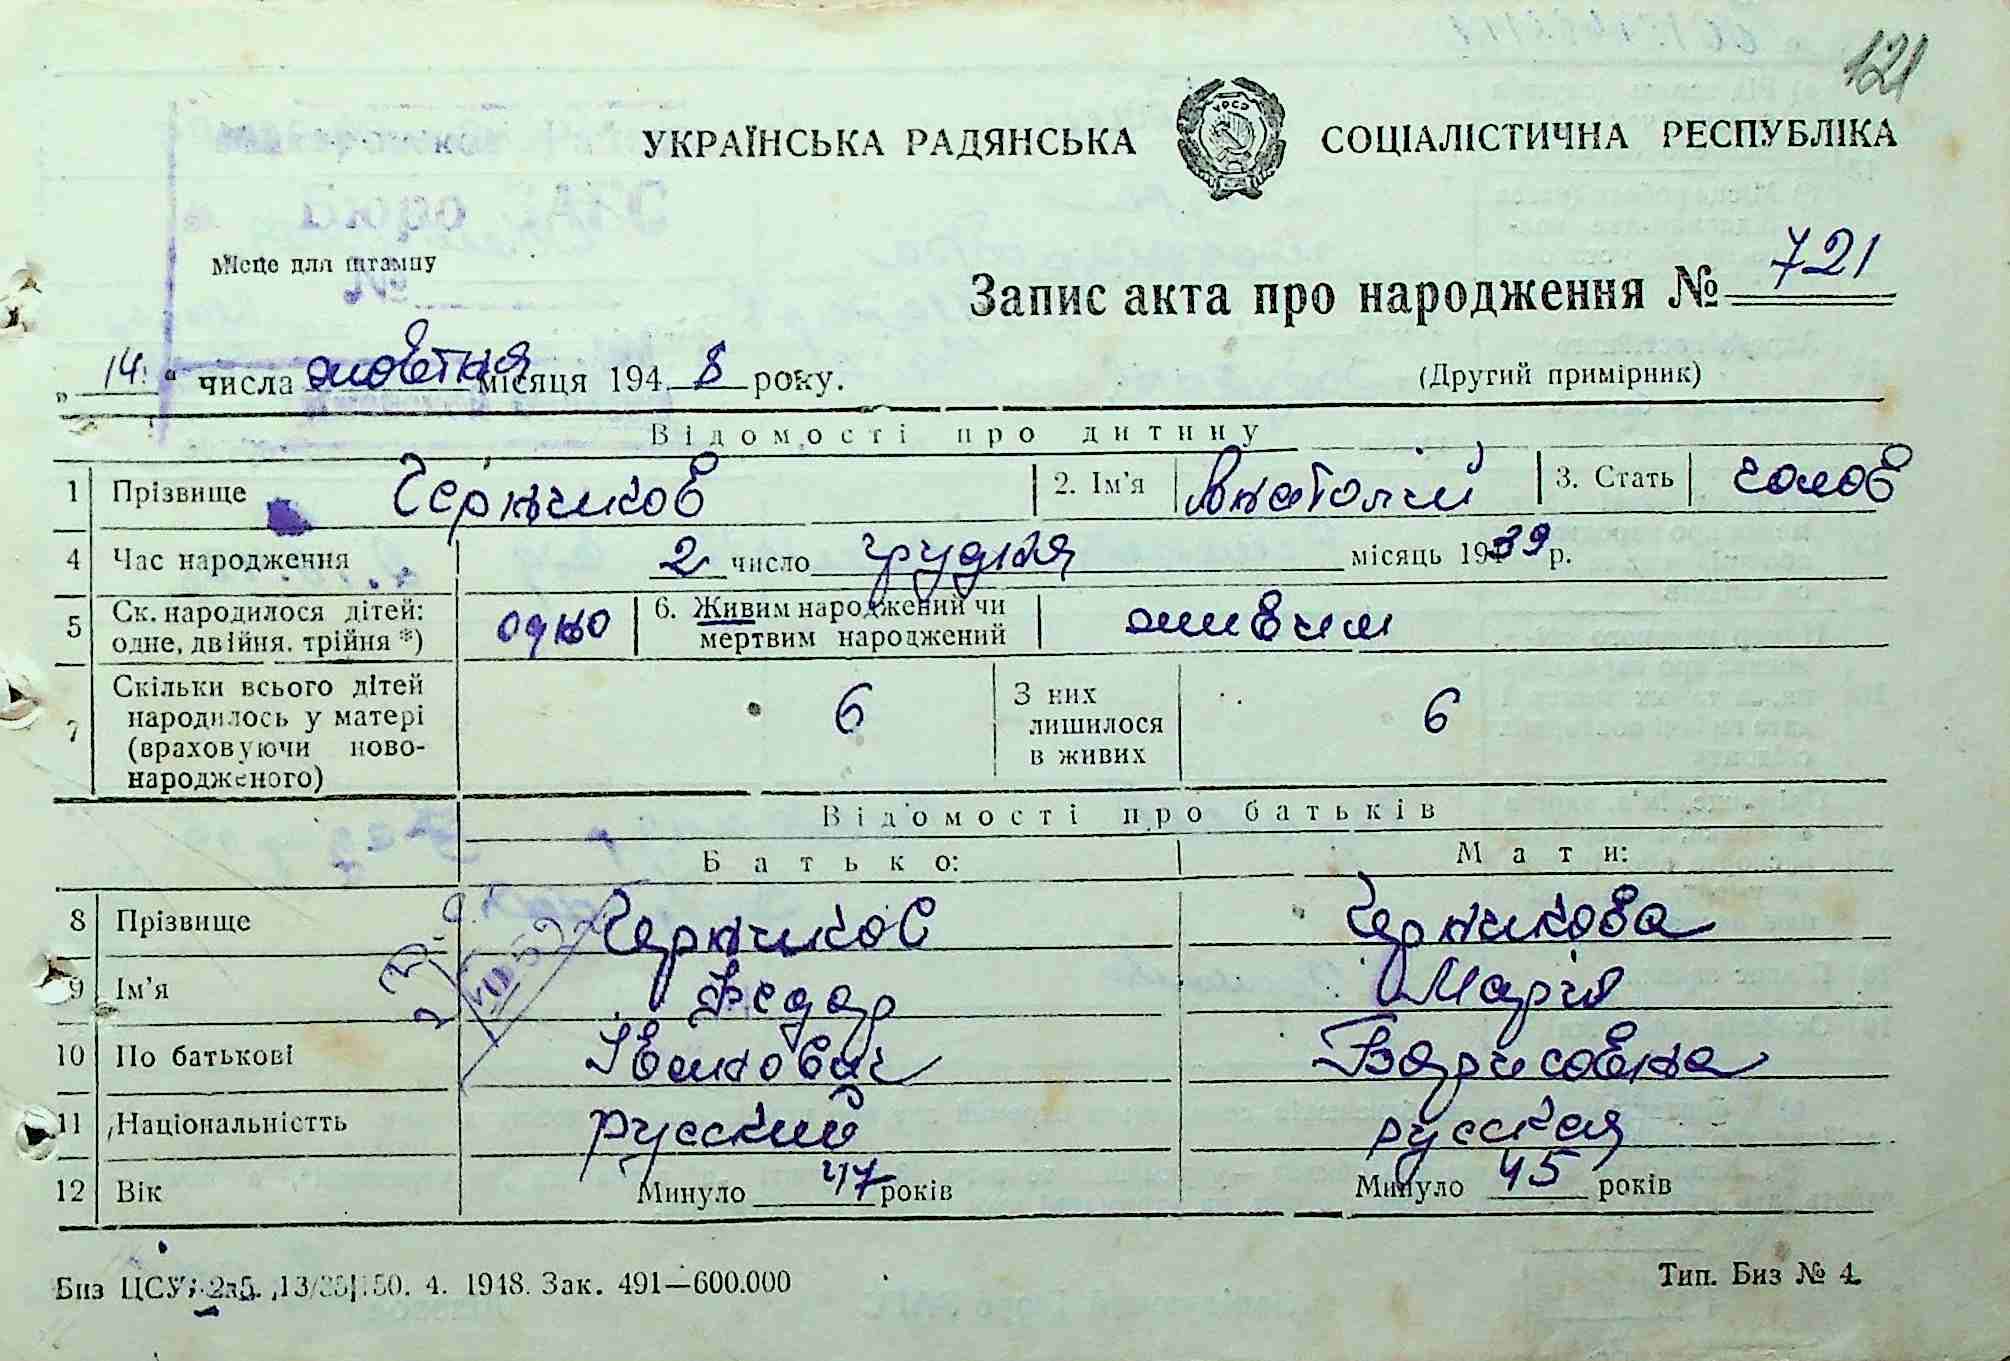 121
УКРАЇНСЬКА РАДЯНСЬКА СОЦІАЛІСТИЧНА РЕСПУБЛІКА
УРСР
Бюро
Місце для штампу
№
Запис акта про народження № 721
„14." числа жовтня місяця 1948 року.
(Другий примірник)
Відомості про дитину
1 Прізвище Черніков 2. Ім'я Анатолій 3. Стать чолов
4 Час народження 2 число грудня місяць 1939 р.
5 Ск. народилося дітей: одно 6. Живим народжений чи живим
одне, двійня, трійня *) мертвим народжений
7 Скільки всього дітей 6 З них 6
народилось у матері лишилося
(враховуючи ново- в живих
народженого)
Відомості про батьків
Батько: Мати:
8 Прізвище Черніков Чернікова
9 Ім'я Федор Марія
10 По батькові Іванович Борисовна
11 Національністть русский русская
12 Вік Минуло 47 років Минуло 45 років
Биз ЦСУ; 4. 1948. Зак. 491—600.000
Тип. Биз № 4.